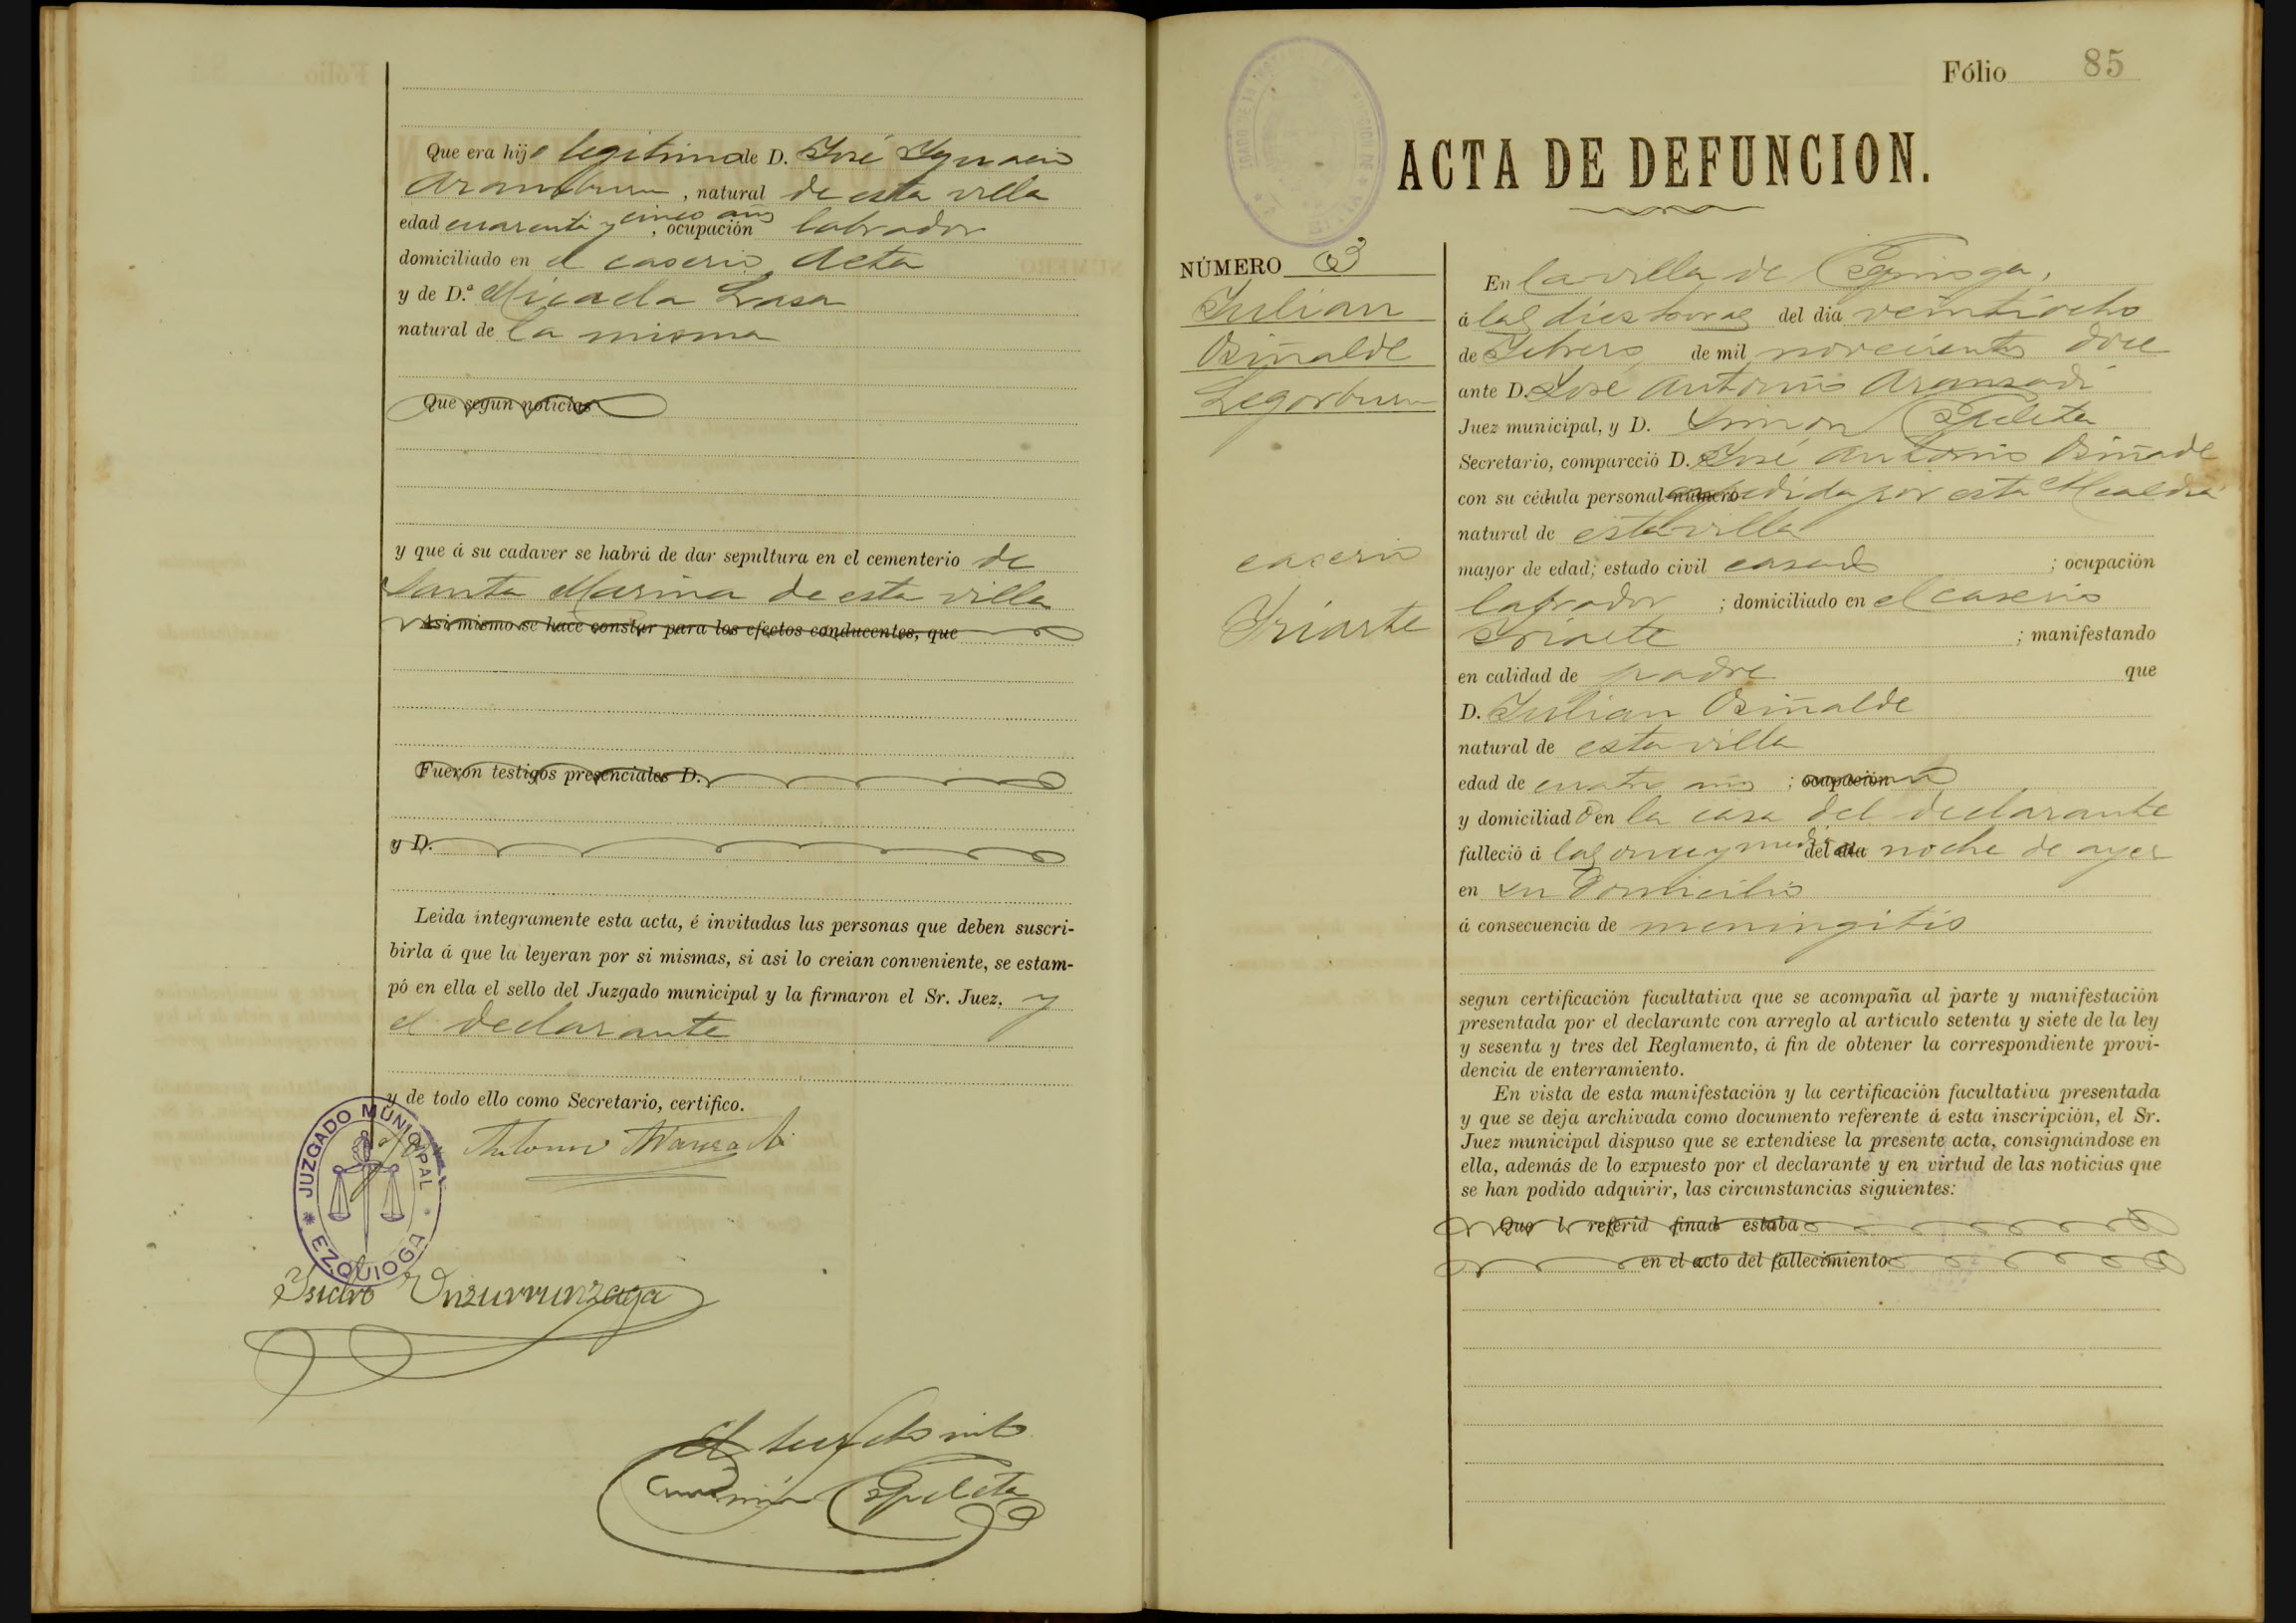 Que era hijo legitimo de D. José Ygnacio
Aramburu, natural de esta villa
edad cuarenta y cinco años, ocupación labrador
domiciliado en el caserio Aeta
y de D.ª Micaela Lasa
natural de la misma
Que segun noticias
y que á su cadaver se habrá de dar sepultura en el cementerio de
Santa Marina de esta villa
Asimismo se hace constar para los efectos conducentes, que
Fueron testigos presenciales D.
y D.
Leida integramente esta acta, é invitadas las personas que deben suscri-
birla á que la leyeran por si mismas, si asi lo creian conveniente, se estam-
pó en ella el sello del Juzgado municipal y la firmaron el Sr. Juez, y
el declarante
y de todo ello como Secretario, certifico.
José Antonio Aranzadi
JUZGADO MUNICIPAL
EZQUIOGA
Isidro Unzurrunzaga
El Secretario
Simón Ezpeleta
Fólio 85
ACTA DE DEFUNCION.
NÚMERO 3
Julian
Osiñalde
Legorburu
caserio
Yriarte
En la villa de Ezquioga,
á las diez horas del dia veintiocho
de Febrero de mil novecientos doce
ante D. José Antonio Aranzadi
Juez municipal, y D. Simon Ezpeleta
Secretario, compareció D. José Antonio Osiñalde
con su cédula personal número expedida por esta Alcaldia
natural de esta villa
mayor de edad; estado civil casado ; ocupación
labrador ; domiciliado en el caserio
Yriarte ; manifestando
en calidad de padre que
D. Julian Osiñalde
natural de esta villa
edad de cuatro años ; ocupación
y domiciliado en la casa del declarante
falleció á las once y media del dia noche de ayer
en su domicilio
á consecuencia de meningitis
segun certificación facultativa que se acompaña al parte y manifestación
presentada por el declarante con arreglo al articulo setenta y siete de la ley
y sesenta y tres del Reglamento, á fin de obtener la correspondiente provi-
dencia de enterramiento.
En vista de esta manifestación y la certificación facultativa presentada
y que se deja archivada como documento referente á esta inscripción, el Sr.
Juez municipal dispuso que se extendiese la presente acta, consignándose en
ella, además de lo expuesto por el declarante y en virtud de las noticias que
se han podido adquirir, las circunstancias siguientes:
Que l referid finad estaba
en el acto del fallecimiento